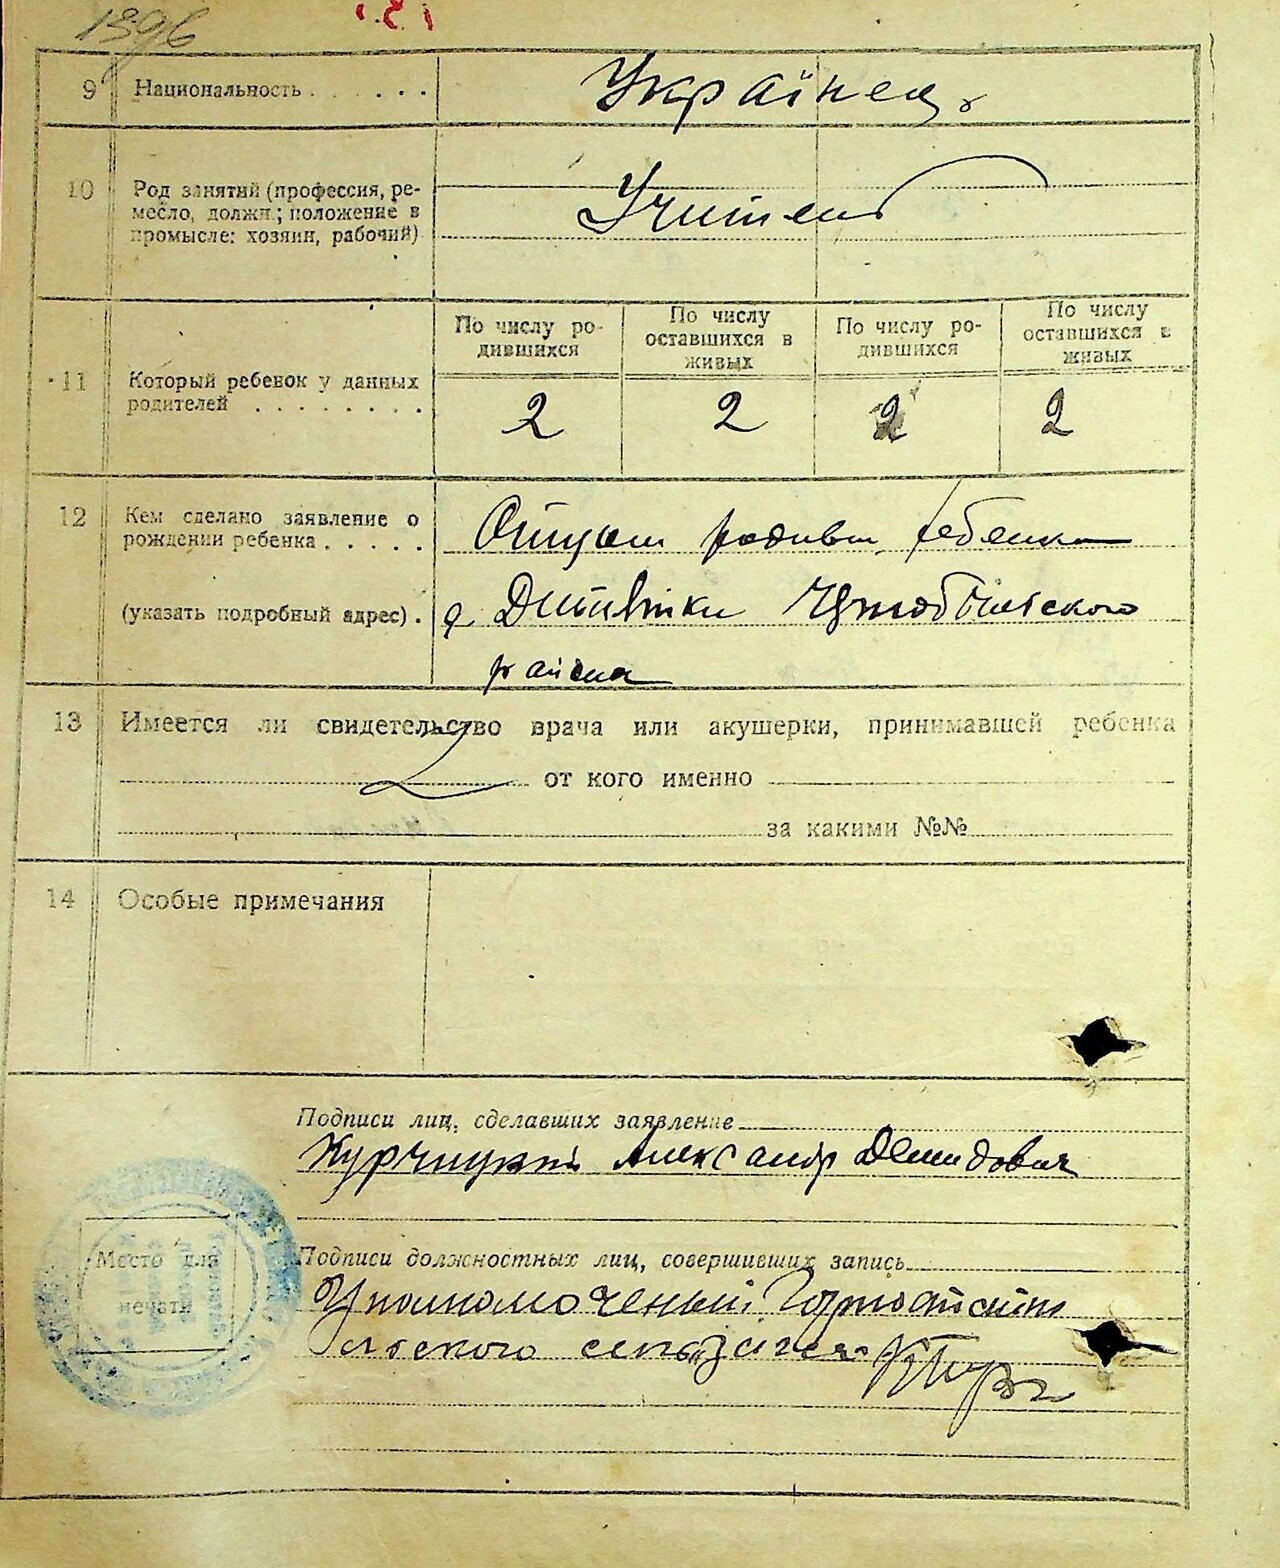 1396
9 Национальность . . . . . . Українец.
10 Род занятий (профессия, ре-
месло, должн.; положение в
промысле: хозяин, рабочий)
Учитель
11 Который ребенок у данных
родителей . . . . . . . .
По числу ро-
дившихся
По числу
оставшихся в
живых
По числу ро-
дившихся
По числу
оставшихся в
живых
2 2 2 2
12 Кем сделано заявление о
рождении ребенка . . . . .
(указать подробный адрес) .
Отцом родивш. ребенка
Дитятки Чернобильского
района
13 Имеется ли свидетельство врача или акушерки, принимавшей ребенка
от кого именно
за какими №№
14 Особые примечания
Подписи лиц, сделавших заявление
Курчицкий Александр Демидович
Место для
печати
Подписи должностных лиц, совершивших запись
Уполномоченый